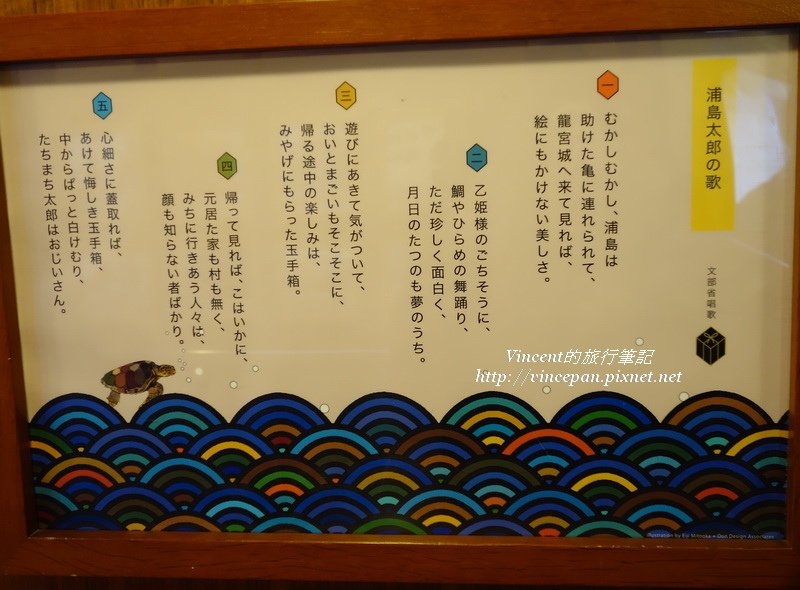 浦島太郎の歌
文部省唱歌
一
むかしむかし、浦島は
助けた亀に連れられて、
龍宮城へ来て見れば、
絵にもかけない美しさ。
二
乙姫様のごちそうに、
鯛やひらめの舞踊り、
ただ珍しく面白く、
月日のたつのも夢のうち。
三
遊びにあきて気がついて、
おいとまごいもそこそこに、
帰る途中の楽しみは、
みやげにもらった玉手箱。
四
帰って見れば、こはいかに、
元居た家も村も無く、
みちに行きあう人々は、
顔も知らない者ばかり。
五
心細さに蓋取れば、
あけて悔しき玉手箱、
中からぱっと白けむり、
たちまち太郎はおじいさん。
Vincent的旅行筆記
http://vincepan.pixnet.net
Illustration by Eiji Mitooka + Don Design Associates